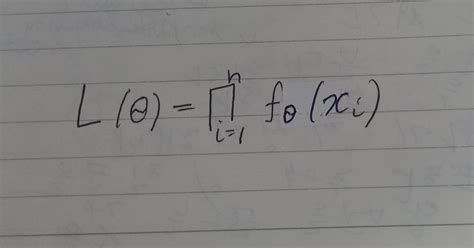 L(θ) = ∏ᵢ₌₁ⁿ f_θ(xᵢ)